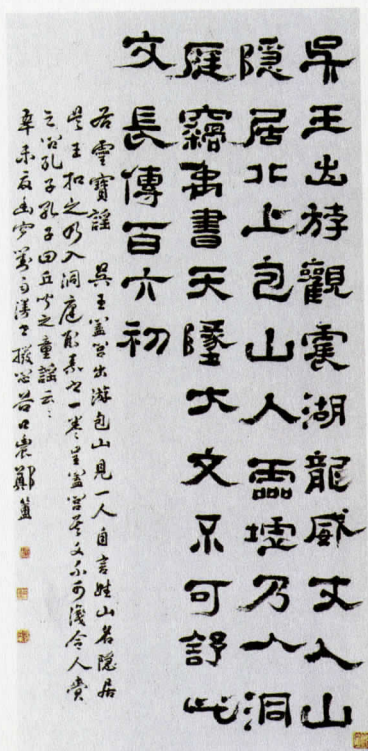 吳王出斿觀震湖龍威丈人山
隱居北上包山入靈墟乃入洞
庭竊禹書天墜大文不可舒此
文長傳百六初
右靈寶謠 吳王闔閭出游包山見一人自言姓山名隱居
吳王扣之乃入洞庭取素書一卷呈闔閭其文不可識令人賫
之問孔子孔子曰丘聞之童謠云云
辛未夏 對雨 撥悶谷口農鄭簠